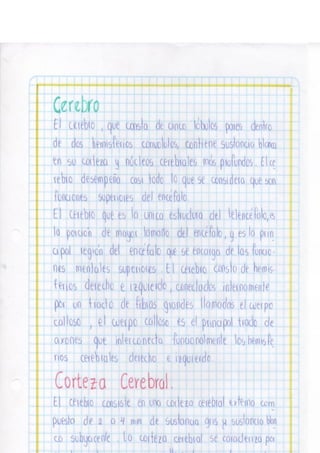 Cerebro
El cerebro, que consta de cinco lóbulos pares dentro
de dos hemisferios convolutos, contiene sustancia blanca
en su corteza y núcleos cerebrales más profundos. El ce
rebro desempeña casi todo lo que se considera que son
funciones superiores del encefalo.
El cerebro que es la unica estructura del telencefalo, es
la porción de mayor tamaño del encefalo, y es la prin
cipal region del encefalo que se encarga de las funcio-
nes mentales superiores. El cerebro consta de hemis-
ferios derecho e izquierdo, conectados internamente
por un tracto de fibras grandes llamadas el cuerpo
calloso, el cuerpo calloso es el principal tracto de
axones que interconecta funcionalmente los hemisfe
rios cerebrales derecho e izquierdo.
Corteza Cerebral.
El cerebro consiste en una corteza cerebral externa com
puesta de 2 a 4 mm de sustancia gris y sustancia blan
ca subyacente. La corteza cerebral se caracteriza por